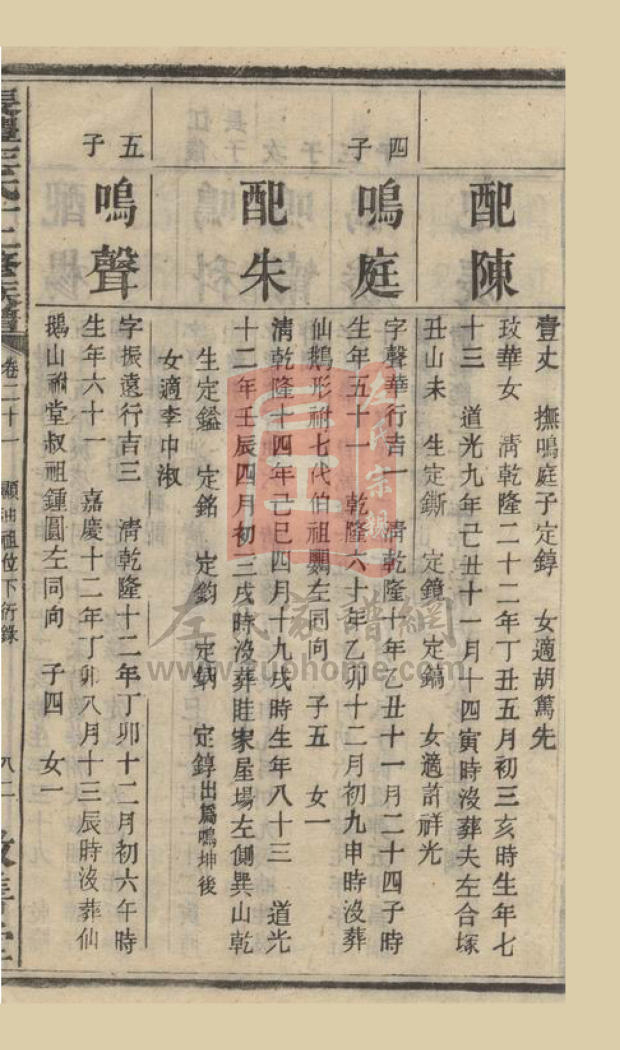 壹丈 撫鳴庭子定錞 女適胡萬先
配陳
玟華女 清乾隆二十二年丁丑五月初三亥時生年七
十三 道光九年己丑十一月十四寅時沒葬夫左合塚
丑山未 生定鐁 定鏡 定鎬 女適許祥光
四子
鳴庭
字聲華行吉一 清乾隆十年乙丑十一月二十四子時
生年五十一 乾隆六十年乙卯十二月初九申時沒葬
仙鵝形祔七代伯祖鸚左同向 子五 女一
配朱
清乾隆十四年己巳四月十九戌時生年八十三 道光
十二年壬辰四月初三戌時沒葬眭家屋場左側巽山乾
生定鎰 定銘 定鈞 定鈵 定錞出爲鳴坤後
女適李中淑
五子
鳴聲
字振遠行吉三 清乾隆十二年丁卯十二月初六午時
生年六十一 嘉慶十二年丁卯八月十三辰時沒葬仙
鵝山祔堂叔祖鍾圓左同向 子四 女一
卷二十一 顯油祖位下衍錄 八二
左氏家譜網
www.zuohome.com